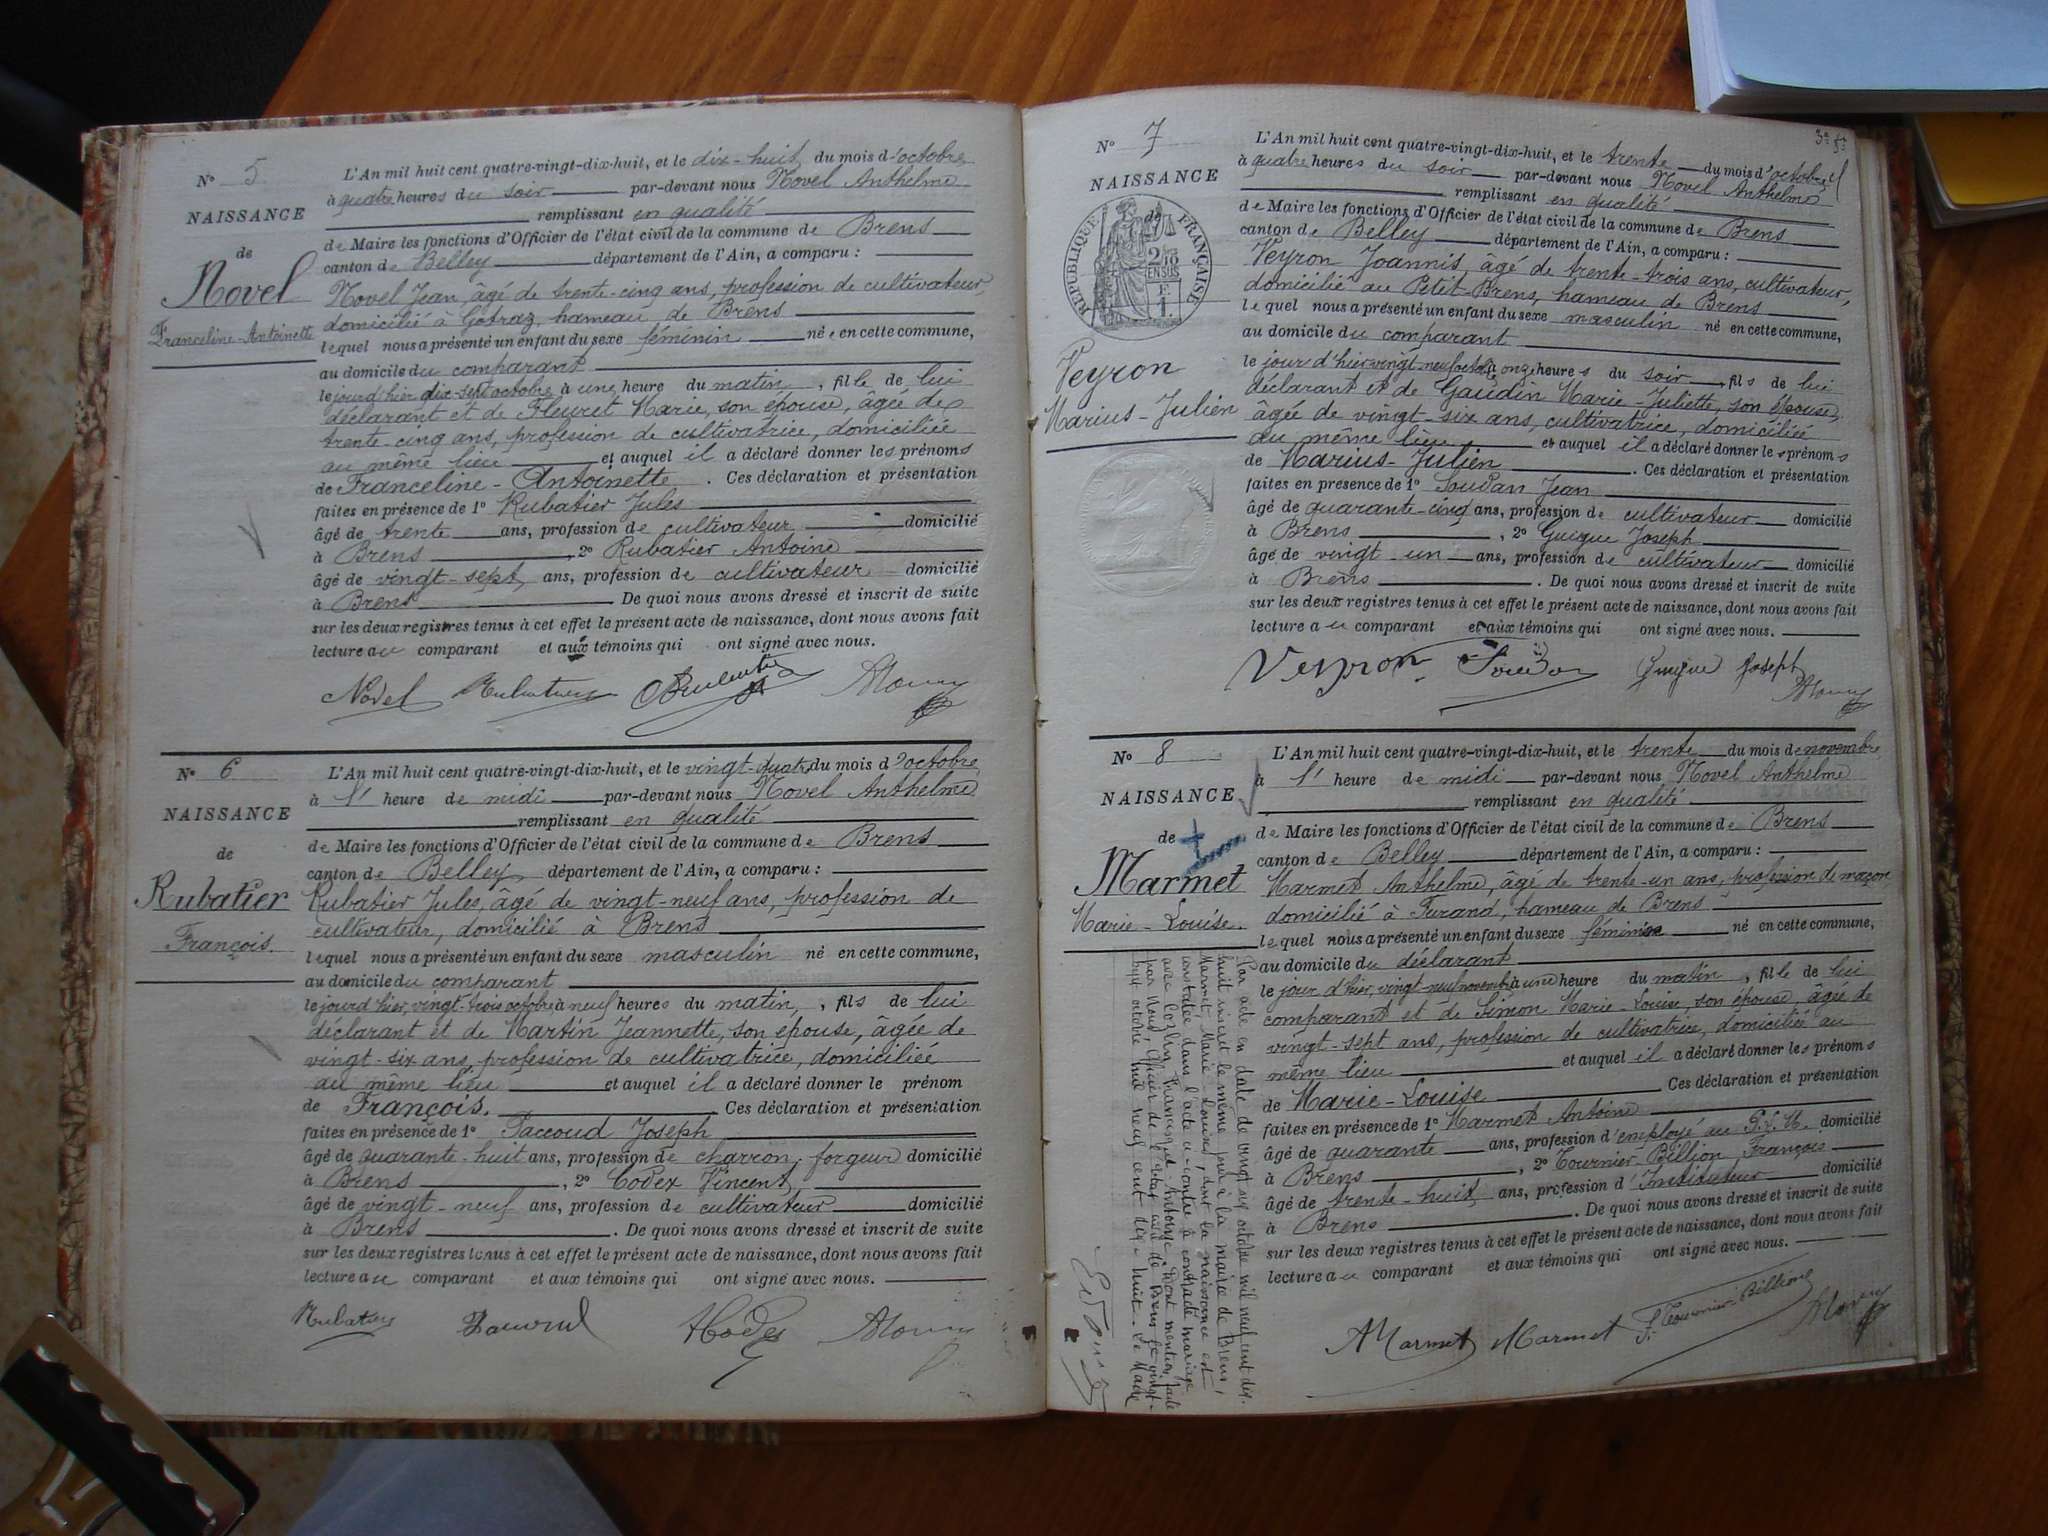 N° 5
NAISSANCE
de
Novel
Franceline-Antoinette
L'An mil huit cent quatre-vingt-dix-huit, et le dix-huit du mois d'octobre
à quatre heures du soir par-devant nous Novel Anthelme
remplissant en qualité
de Maire les fonctions d'Officier de l'état civil de la commune de Brens
canton de Belley département de l'Ain, a comparu :
Novel Jean, âgé de trente-cinq ans, profession de cultivateur,
domicilié à Gotraz, hameau de Brens
lequel nous a présenté un enfant du sexe féminin née en cette commune,
au domicile du comparant
le jour d'hier dix-sept octobre à une heure du matin, fille de lui
déclarant et de Fleuret Marie, son épouse, âgée de
trente-cinq ans, profession de cultivatrice, domiciliée
au même lieu et auquel il a déclaré donner les prénoms
de Franceline-Antoinette. Ces déclaration et présentation
faites en présence de 1° Rubatier Jules
âgé de trente ans, profession de cultivateur domicilié
à Brens, 2° Rubatier Antoine
âgé de vingt-sept ans, profession de cultivateur domicilié
à Brens. De quoi nous avons dressé et inscrit de suite
sur les deux registres tenus à cet effet le présent acte de naissance, dont nous avons fait
lecture au comparant et aux témoins qui ont signé avec nous.
Novel Rubatier
N° 6
NAISSANCE
de
Rubatier
François.
L'An mil huit cent quatre-vingt-dix-huit, et le vingt-quatre du mois d'octobre
à l' heure de midi par-devant nous Novel Anthelme
remplissant en qualité
de Maire les fonctions d'Officier de l'état civil de la commune de Brens
canton de Belley département de l'Ain, a comparu :
Rubatier Jules, âgé de vingt-neuf ans, profession de
cultivateur, domicilié à Brens
lequel nous a présenté un enfant du sexe masculin né en cette commune,
au domicile du comparant
le jour d'hier, vingt-trois octobre à neuf heures du matin, fils de lui
déclarant et de Martin Jeannette, son épouse, âgée de
vingt-six ans, profession de cultivatrice, domiciliée
au même lieu et auquel il a déclaré donner le prénom
de François. Ces déclaration et présentation
faites en présence de 1° Paccoud Joseph
âgé de quarante-huit ans, profession de charron, forgeur domicilié
à Brens, 2° Codex Vincent,
âgé de vingt-neuf ans, profession de cultivateur domicilié
à Brens. De quoi nous avons dressé et inscrit de suite
sur les deux registres tenus à cet effet le présent acte de naissance, dont nous avons fait
lecture au comparant et aux témoins qui ont signé avec nous.
Rubatier
N° 7
NAISSANCE
de
RÉPUBLIQUE FRANÇAISE
Veyron
Marius-Julien
L'An mil huit cent quatre-vingt-dix-huit, et le trente du mois d'octobre
à quatre heures du soir par-devant nous Novel Anthelme
remplissant en qualité
de Maire les fonctions d'Officier de l'état civil de la commune de Brens
canton de Belley département de l'Ain, a comparu :
Veyron Joannis, âgé de trente-trois ans, cultivateur,
domicilié au Petit-Brens, hameau de Brens
lequel nous a présenté un enfant du sexe masculin né en cette commune,
au domicile du comparant
le jour d'hier vingt neuf octobre à onze heures du soir, fils de lui
déclarant et de Gaudin Marie-Juliette, son épouse,
âgée de vingt-six ans, cultivatrice, domiciliée
au même lieu et auquel il a déclaré donner les prénoms
de Marius-Julien. Ces déclaration et présentation
faites en présence de 1° Soudan Jean
âgé de quarante-cinq ans, profession de cultivateur domicilié
à Brens, 2° Guigue Joseph
âgé de vingt-un ans, profession de cultivateur domicilié
à Brens. De quoi nous avons dressé et inscrit de suite
sur les deux registres tenus à cet effet le présent acte de naissance, dont nous avons fait
lecture au comparant et aux témoins qui ont signé avec nous.
Veyron Soudan Guigue Joseph
N° 8
NAISSANCE
de
Marmet
Marie-Louise.
L'An mil huit cent quatre-vingt-dix-huit, et le trente du mois de novembre
à l' heure de midi par-devant nous Novel Anthelme
remplissant en qualité
de Maire les fonctions d'Officier de l'état civil de la commune de Brens
canton de Belley département de l'Ain, a comparu :
Marmet Anthelme, âgé de trente-un ans, profession de maçon,
domicilié à Furand, hameau de Brens
lequel nous a présenté un enfant du sexe féminin né en cette commune,
au domicile du déclarant
le jour d'hier, vingt neuf novembre à une heure du matin, fille de lui
comparant et de Simon Marie-Louise, son épouse, âgée de
vingt-sept ans, profession de cultivatrice, domiciliée au
même lieu et auquel il a déclaré donner les prénoms
de Marie-Louise Ces déclaration et présentation
faites en présence de 1° Marmet Antoine
âgé de quarante ans, profession d'employé au P.L.M. domicilié
à Brens, 2° Tournier-Billion François
âgé de trente-huit ans, profession d'Instituteur domicilié
à Brens. De quoi nous avons dressé et inscrit de suite
sur les deux registres tenus à cet effet le présent acte de naissance, dont nous avons fait
lecture au comparant et aux témoins qui ont signé avec nous.
A Marmet Marmet Tournier-Billion
Par acte en date du vingt six octobre mil neuf cent dix-
huit inscrit le même jour à la mairie de Brens,
Marmet Marie Louise, dont la naissance est
constatée dans l'acte ci-contre a contracté mariage
avec François Antoine, dont mention faite
par Nous, Officier de l'état civil de Brens le vingt-
huit octobre mil neuf cent dix-huit. Le Maire